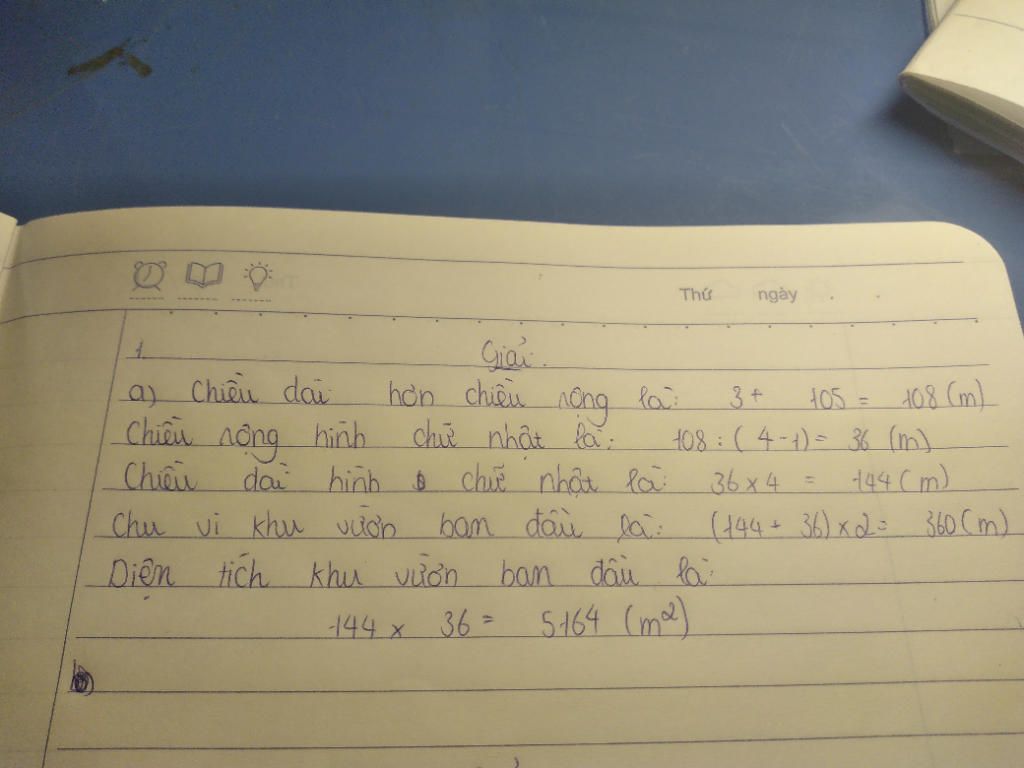 Thứ ngày
1. Giải:
a) Chiều dài hơn chiều rộng là: 3+ 105 = 108 (m)
Chiều rộng hình chữ nhật là: 108 : (4-1) = 36 (m)
Chiều dài hình chữ nhật là: 36 x 4 = 144 (m)
Chu vi khu vườn ban đầu là: (144 + 36) x 2 = 360 (m)
Diện tích khu vườn ban đầu là:
144 x 36 = 5164 (m²)